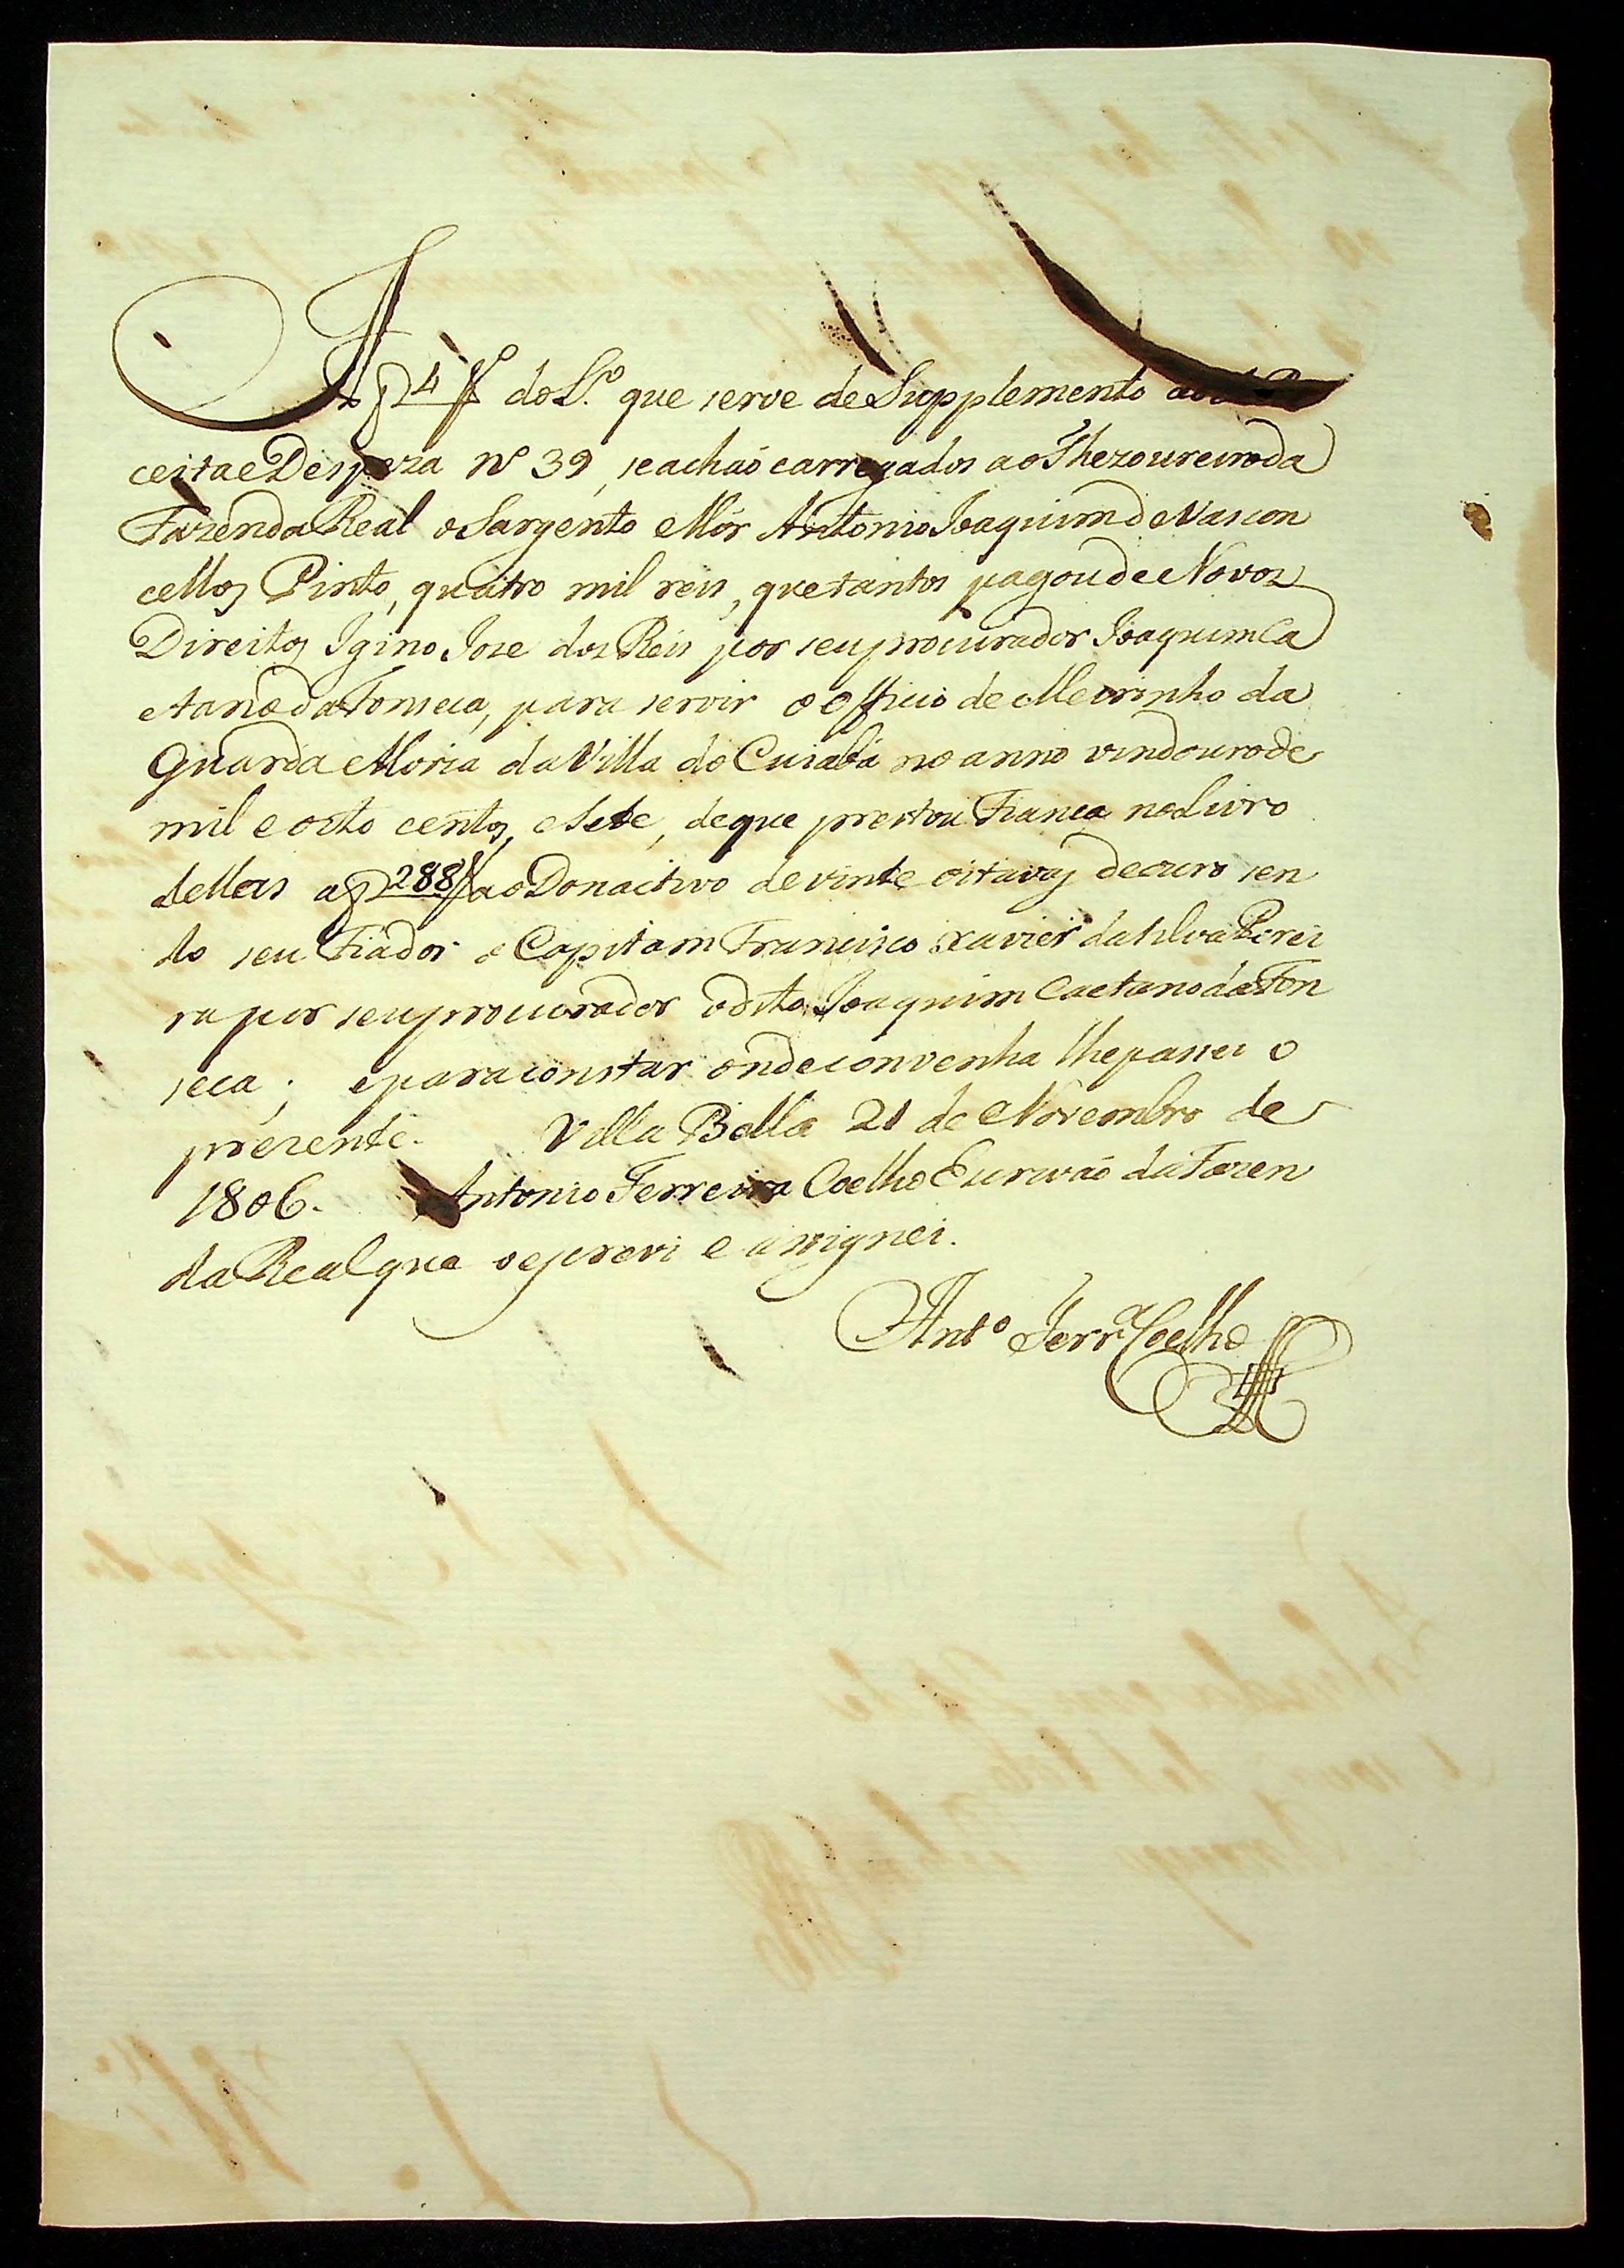 A f 4 do L.º que serve de Supplemento ao da Re
ceita e Despeza Nº 39, se achaõ carregados ao Thezoureiro da
Fazenda Real o Sargento Mór Antonio Joaquim de Vascon
cellos Pinto, quatro mil reis, que tantos pagou de Novos
Direitos Igino Joze dos Reis por seu procurador Joaquim Ca
etano da Fonseca, para servir o officio de Meirinho da
Guarda Moria da Villa do Cuiabá no anno vindouro de
mil e oito centos, e Sete, de que prestou Fiança no Livro
dellas a f 288 ao Donactivo de vinte oitavas de ouro sen
do seu Fiador o Capitam Francisco Xavier da Silva Perei
ra por seu procurador o dito Joaquim Caetano da Fon
seca; e para constar onde convenha lhe passei o
prezente. Villa Bella 21 de Novembro de
1806. Antonio Ferreira Coelho Escrivaõ da Fazen
da Real que o escrevi e assignei.
Ant.º Ferr.ª Coelho